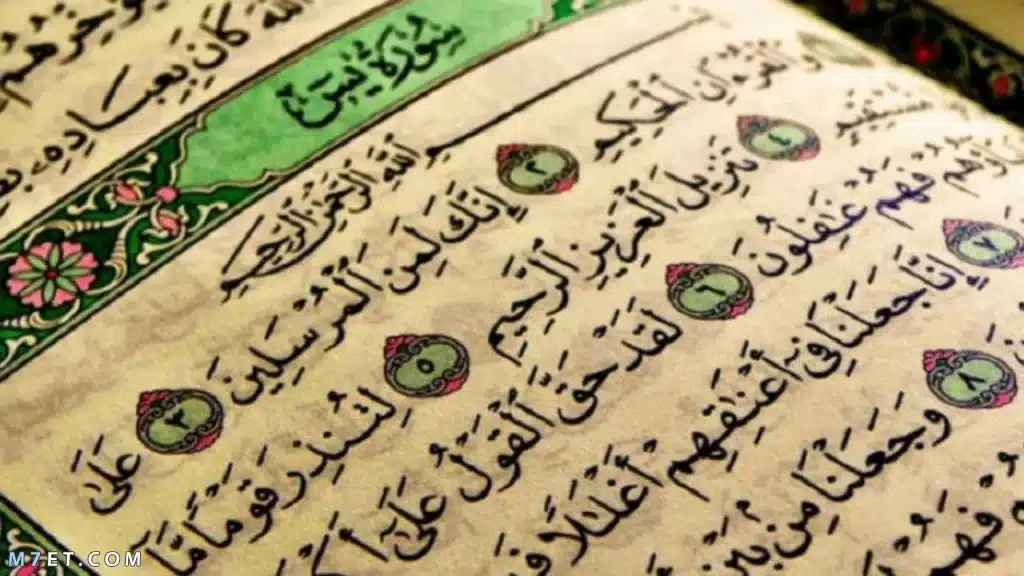 ٱللَّهَ كَانَ بِعِبَادِهِۦ
سُورَةُ يسٓ
بِسْمِ ٱللَّهِ ٱلرَّحْمَٰنِ ٱلرَّحِيمِ
وَٱلْقُرْءَانِ ٱلْحَكِيمِ ٢ إِنَّكَ لَمِنَ ٱلْمُرْسَلِينَ ٣ عَلَىٰ
مُّسْتَقِيمٍ ٤ تَنزِيلَ ٱلْعَزِيزِ ٱلرَّحِيمِ ٥ لِتُنذِرَ قَوْمًا مَّآ
فَهُمْ غَٰفِلُونَ ٦ لَقَدْ حَقَّ ٱلْقَوْلُ عَلَىٰٓ
٧ إِنَّا جَعَلْنَا فِىٓ أَعْنَٰقِهِمْ أَغْلَٰلًا
٨ وَجَعَلْنَا مِنۢ بَيْنِ
فَهُمْ
M7ET.COM